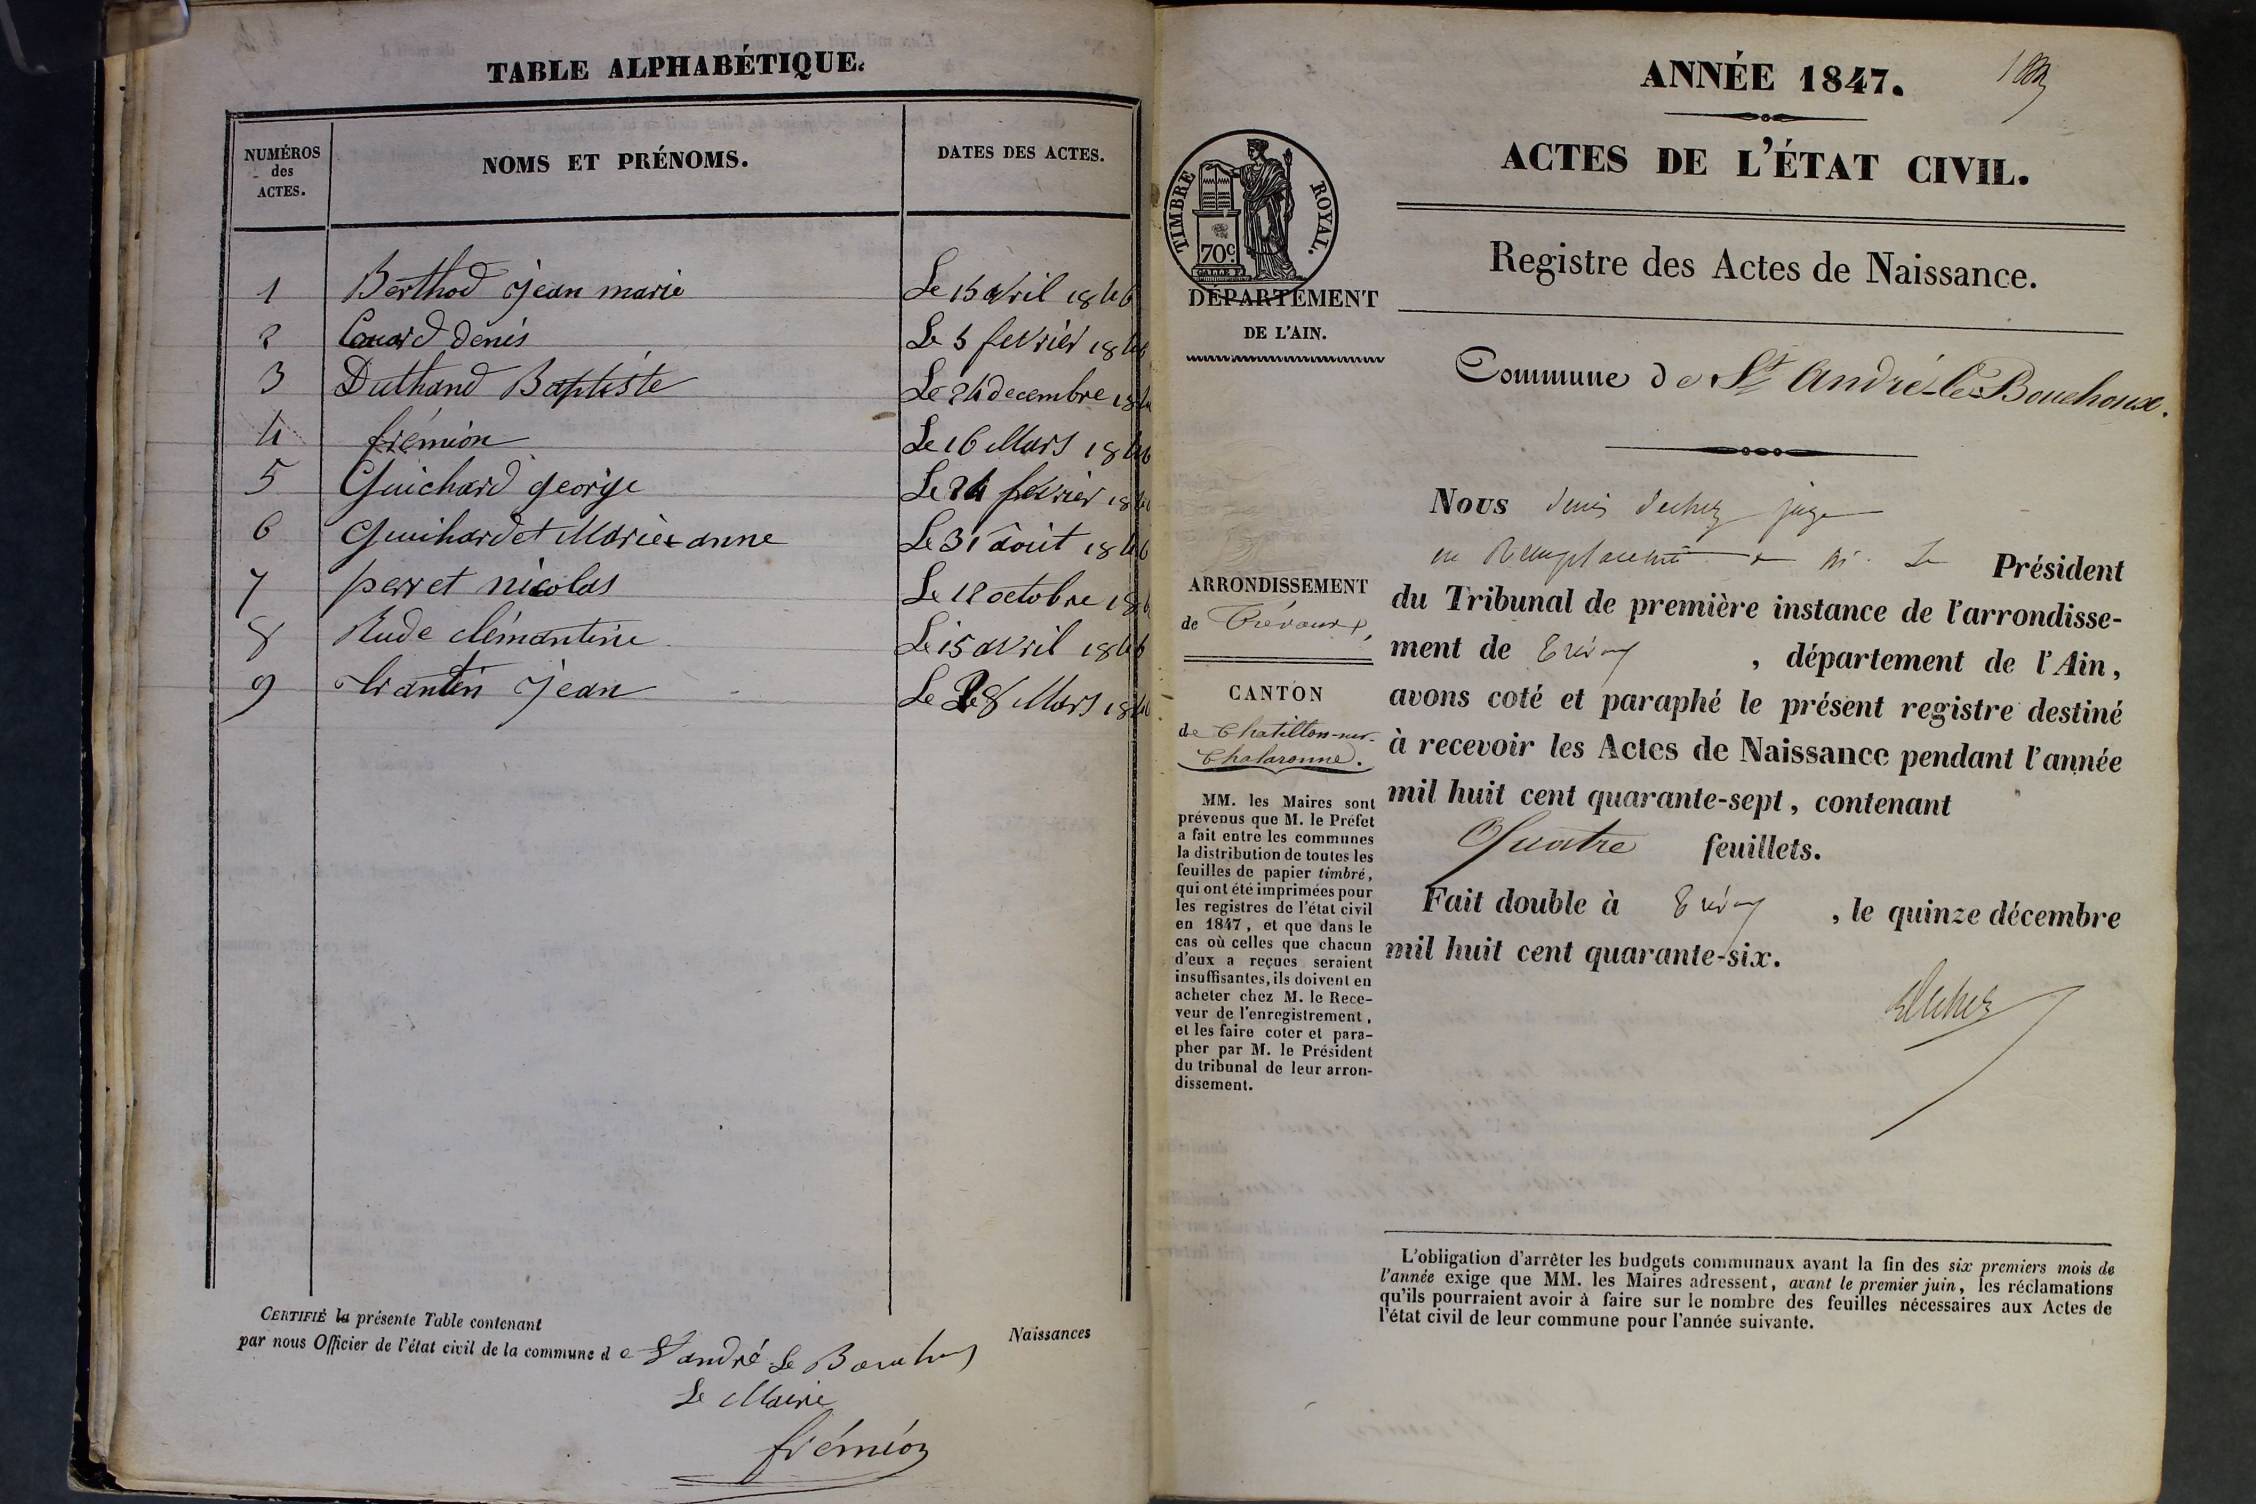 TABLE ALPHABÉTIQUE.
NUMÉROS des ACTES. NOMS ET PRÉNOMS. DATES DES ACTES.
1 Berthod jean marie Le 15 avril 1846
2 denis Le 5 fevrier 1846
3 Duthand Baptiste Le 24 decembre 1846
4 frémion Le 16 Mars 1846
5 Guichard george Le 24 fevrier 1846
6 Guichardet Marie anne Le 31 août 1846
7 perret nicolas Le 12 octobre 1846
8 Rude clémantine Le 15 avril 1846
9 jean Le 28 Mars 1846
CERTIFIÉ la présente Table contenant Naissances
par nous Officier de l'état civil de la commune de St andré Le Bouchoux
Le Maire
frémion
ANNÉE 1847.
ACTES DE L'ÉTAT CIVIL.
TIMBRE ROYAL.
70c
DÉPARTEMENT
DE L'AIN.
Registre des Actes de Naissance.
Commune de St André-le-Bouchoux.
ARRONDISSEMENT
de Trévoux,
CANTON
de Chatillon-sur-
Chalaronne.
MM. les Maires sont
prévenus que M. le Préfet
a fait entre les communes
la distribution de toutes les
feuilles de papier timbré,
qui ont été imprimées pour
les registres de l'état civil
en 1847, et que dans le
cas où celles que chacun
d'eux a reçues seraient
insuffisantes, ils doivent en
acheter chez M. le Rece-
veur de l'enregistrement,
et les faire coter et para-
pher par M. le Président
du tribunal de leur arron-
dissement.
Nous denis juge
en Remplacement de M. Le Président
du Tribunal de première instance de l'arrondisse-
ment de Trévoux, département de l'Ain,
avons coté et paraphé le présent registre destiné
à recevoir les Actes de Naissance pendant l'année
mil huit cent quarante-sept, contenant
Quatre feuillets.
Fait double à Trévoux, le quinze décembre
mil huit cent quarante-six.
L'obligation d'arrêter les budgets communaux avant la fin des six premiers mois de
l'année exige que MM. les Maires adressent, avant le premier juin, les réclamations
qu'ils pourraient avoir à faire sur le nombre des feuilles nécessaires aux Actes de
l'état civil de leur commune pour l'année suivante.